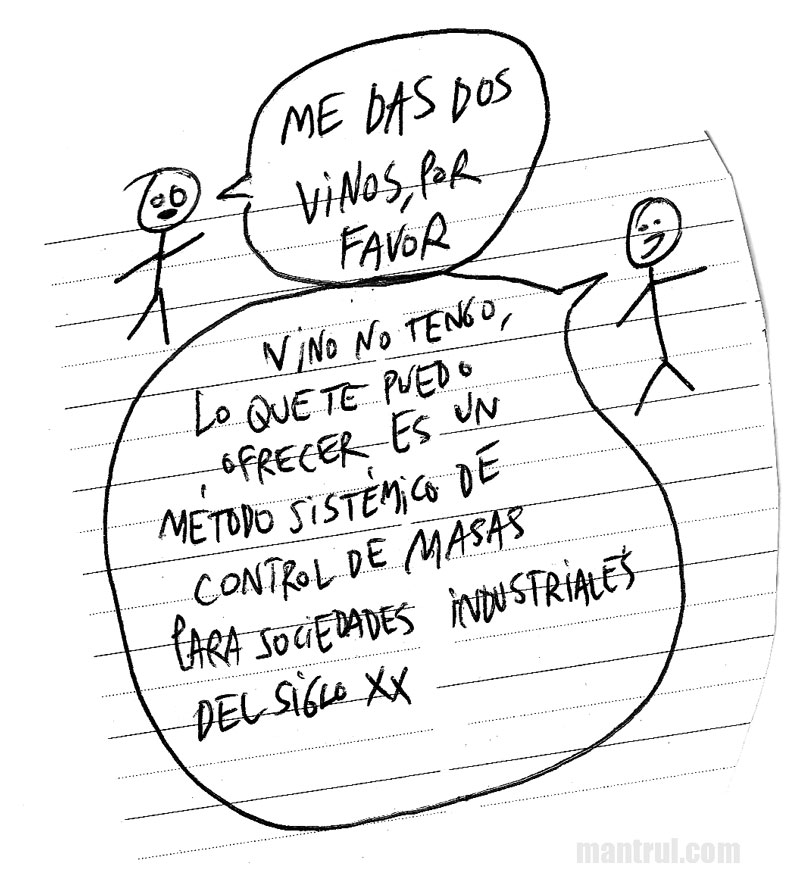 ME DAS DOS
VINOS, POR
FAVOR
VINO NO TENGO,
LO QUE TE PUEDO
OFRECER ES UN
MÉTODO SISTÉMICO DE
CONTROL DE MASAS
PARA SOCIEDADES INDUSTRIALES
DEL SIGLO XX
mantrul.com